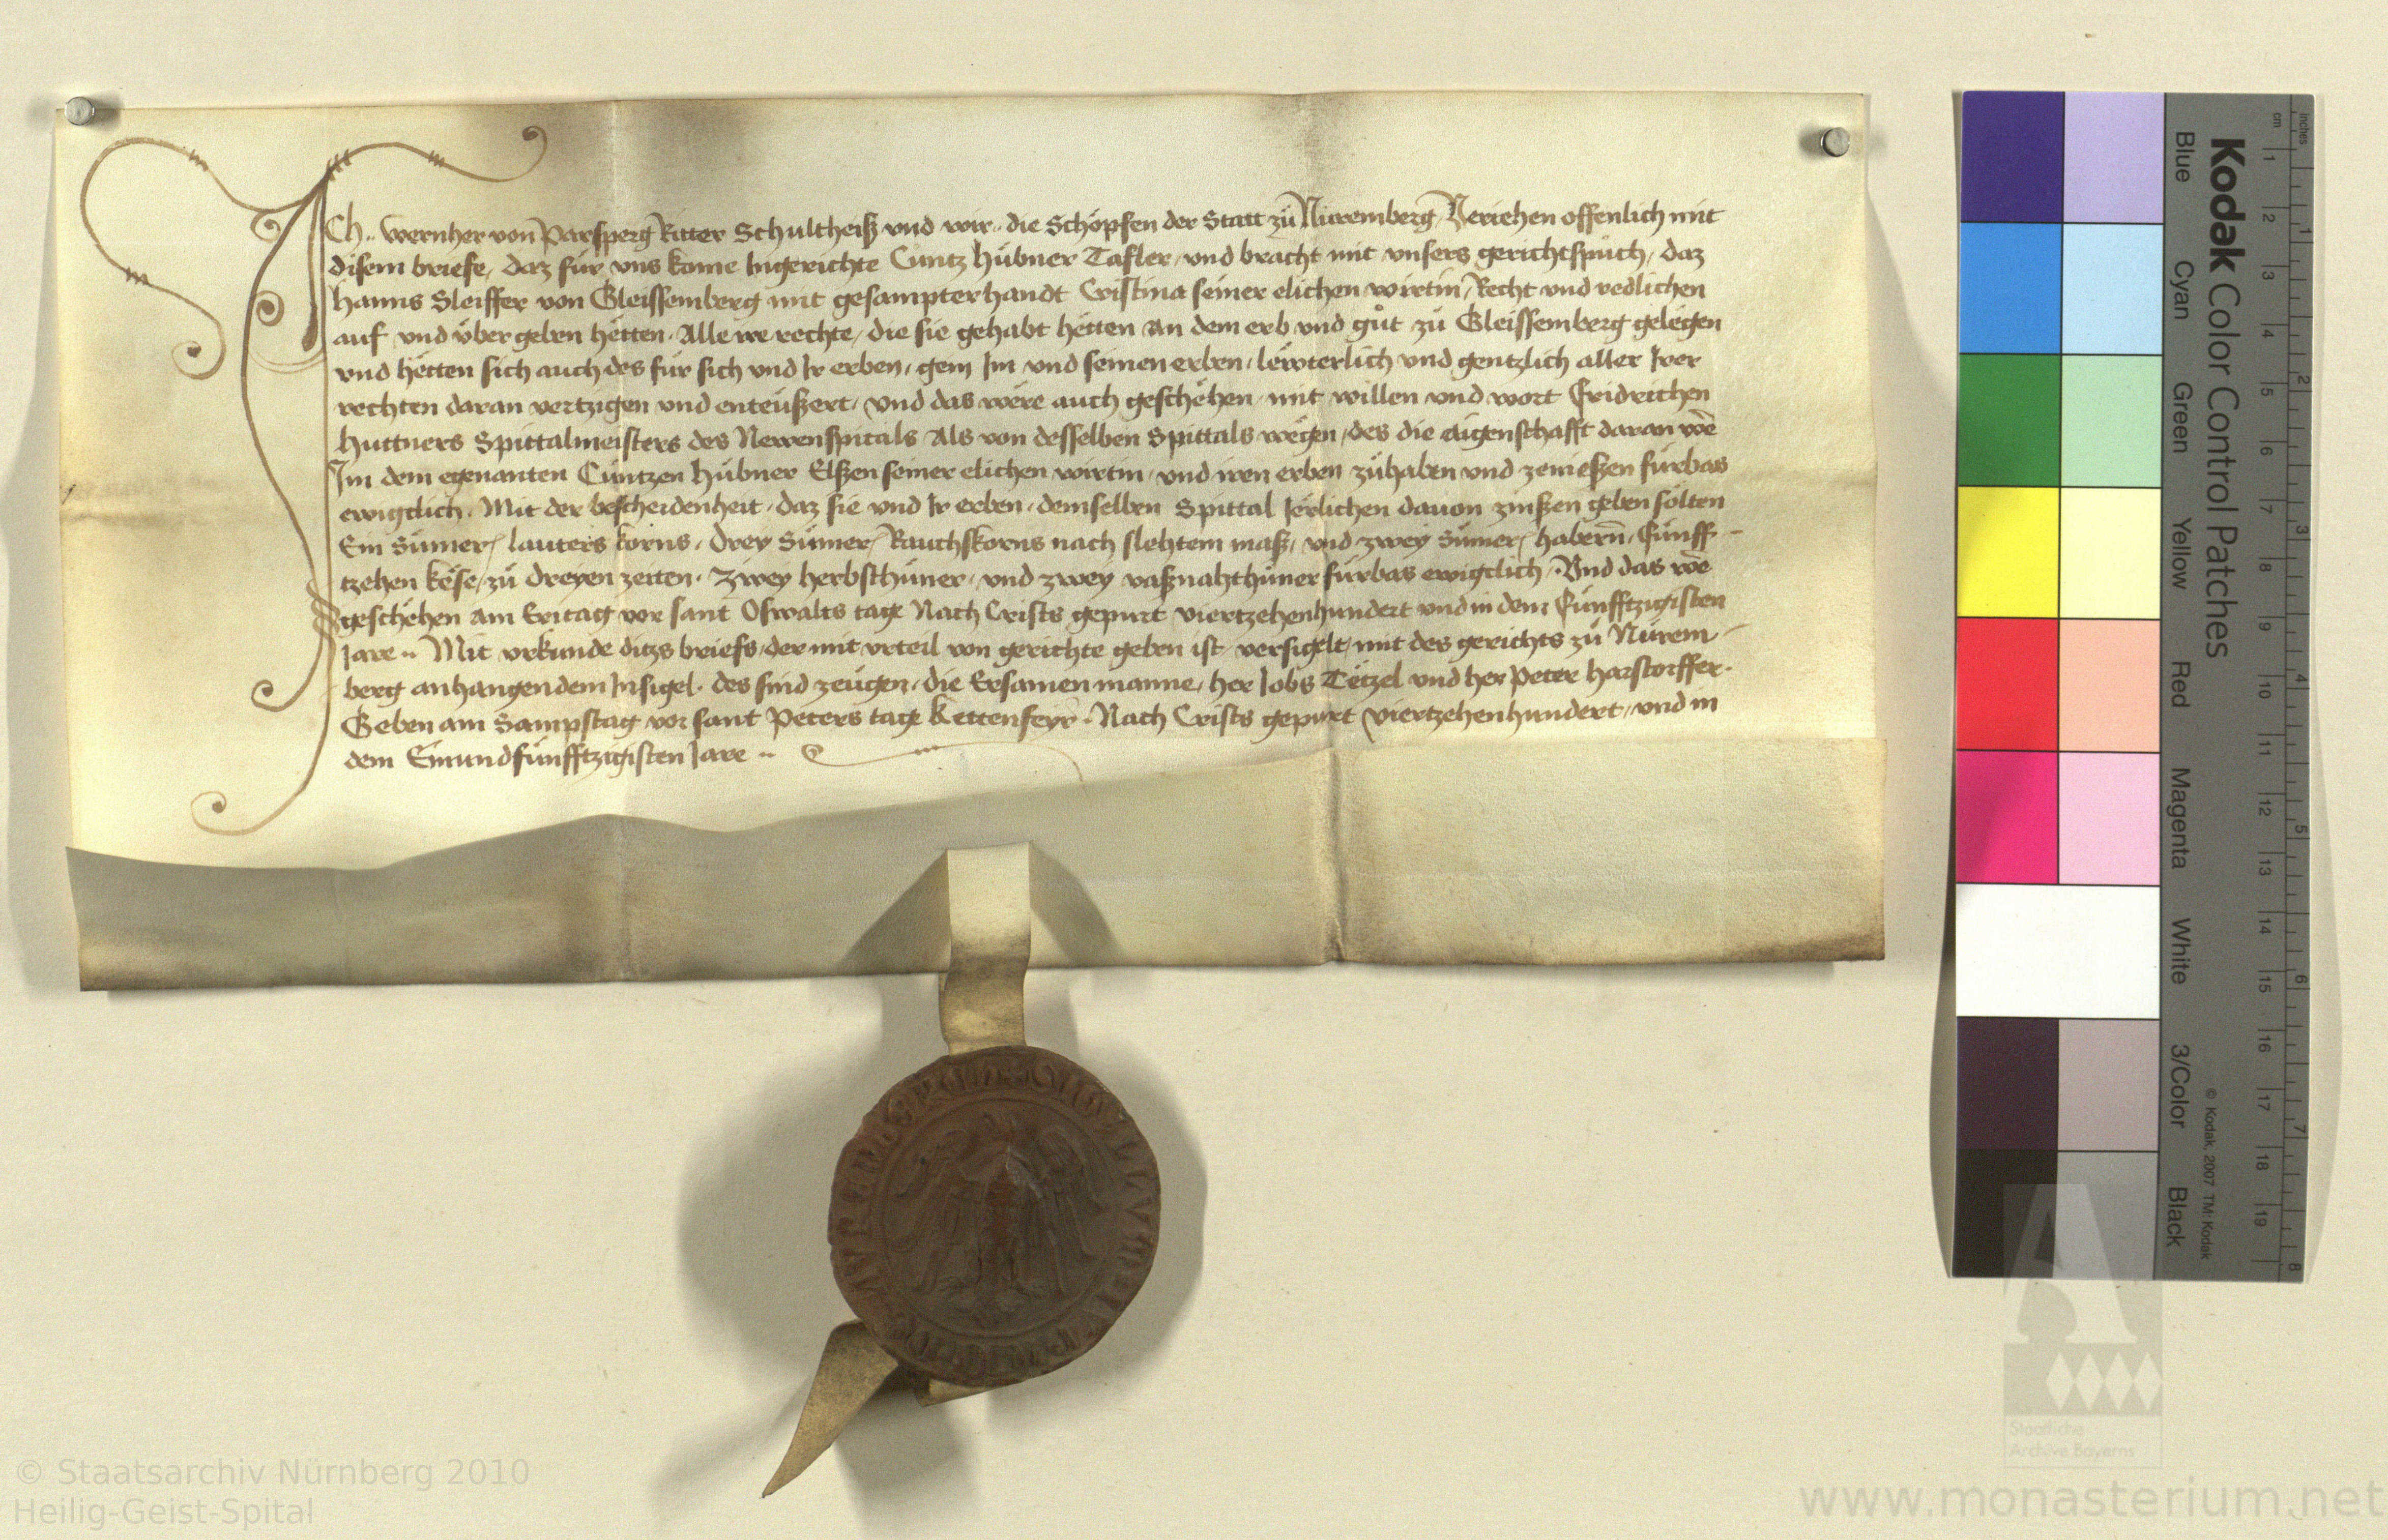 ICh .. Wernher von Parsperg Ritter Schultheiß vnd wir .. die Schöpfen der Statt zü Nüremberg / Veriehen offenlich mit
disem briefe / daz für vns kome Ingerichte Cüntz Hübner Tafler / vnd bracht mit vnsers gerichtspüch / daz
Hanns Sleiffer von Gleissemberg mit gesampter handt Cristina seiner elichen wirtin / Recht vnd redlichen
auf vnd über geben hetten . Alle ire rechte / die sie gehabt hetten an dem erb vnd gůt zü Gleissemberg gelegen
vnd hetten sich auch des für sich vnd Ir erben / gein Im vnd seinen erben / lewterlich vnd gentzlich aller Irer
rechten daran vertzigen vnd enteüßert / vnd das were auch geschehen / mit willen vnd wort Fridrichen
Huttners Spittalmeisters des Newenspitals Als von desselben Spittals wegen / des die aigenschafft daran wē
Im dem egenanten Cüntzen Hübner Elßen seiner elichen wirtin / vnd iren erben zühaben vnd zenießen fürbas
ewigclich . Mit der bescheidenheit / daz sie vnd Ir erben / demselben Spittal Jerlichen dauon zinßen geben sölten
Ein Sümer lauters korns / drey Sümer Rauchskorns nach slehtem maß / vnd zwey Sümer habern̄ / Fünff-
tzehen kese / zü dreyen zeiten . Zwey herbsthüner / vnd zwey vaßnahthüner fürbas ewigclich . Vnd das wē
geschehen am Eritag vor sant Oswalts tage Nach Crists gepurt viertzehenhundert vnd in dem Fünfftzigisten
Jare .. Mit vrkunde ditzs briefs / der mit vrteil von gerichte geben ist / versigelt / mit des gerichts zü Nürem-
berg anhangendem Insigel . des sind zeügen / die Ersamen manne / her Jobs Tetzel vnd her Peter Harstorffer .
Geben am Sampstag vor sant Peters tage Kettenfeyr . Nach Crists gepurt viertzehenhundert / vnd in
dem Einundfünfftzigisten Jare ..
Kodak Color Control Patches
Blue Cyan Green Yellow Red Magenta White 3/Color Black
© Kodak, 2007 TM: Kodak
cm 1 2 3 4 5 6 7 8 9 10 11 12 13 14 15 16 17 18 19
inches 1 2 3 4 5 6 7 8
Staatliche
Archive Bayerns
© Staatsarchiv Nürnberg 2010
Heilig-Geist-Spital
www.monasterium.net